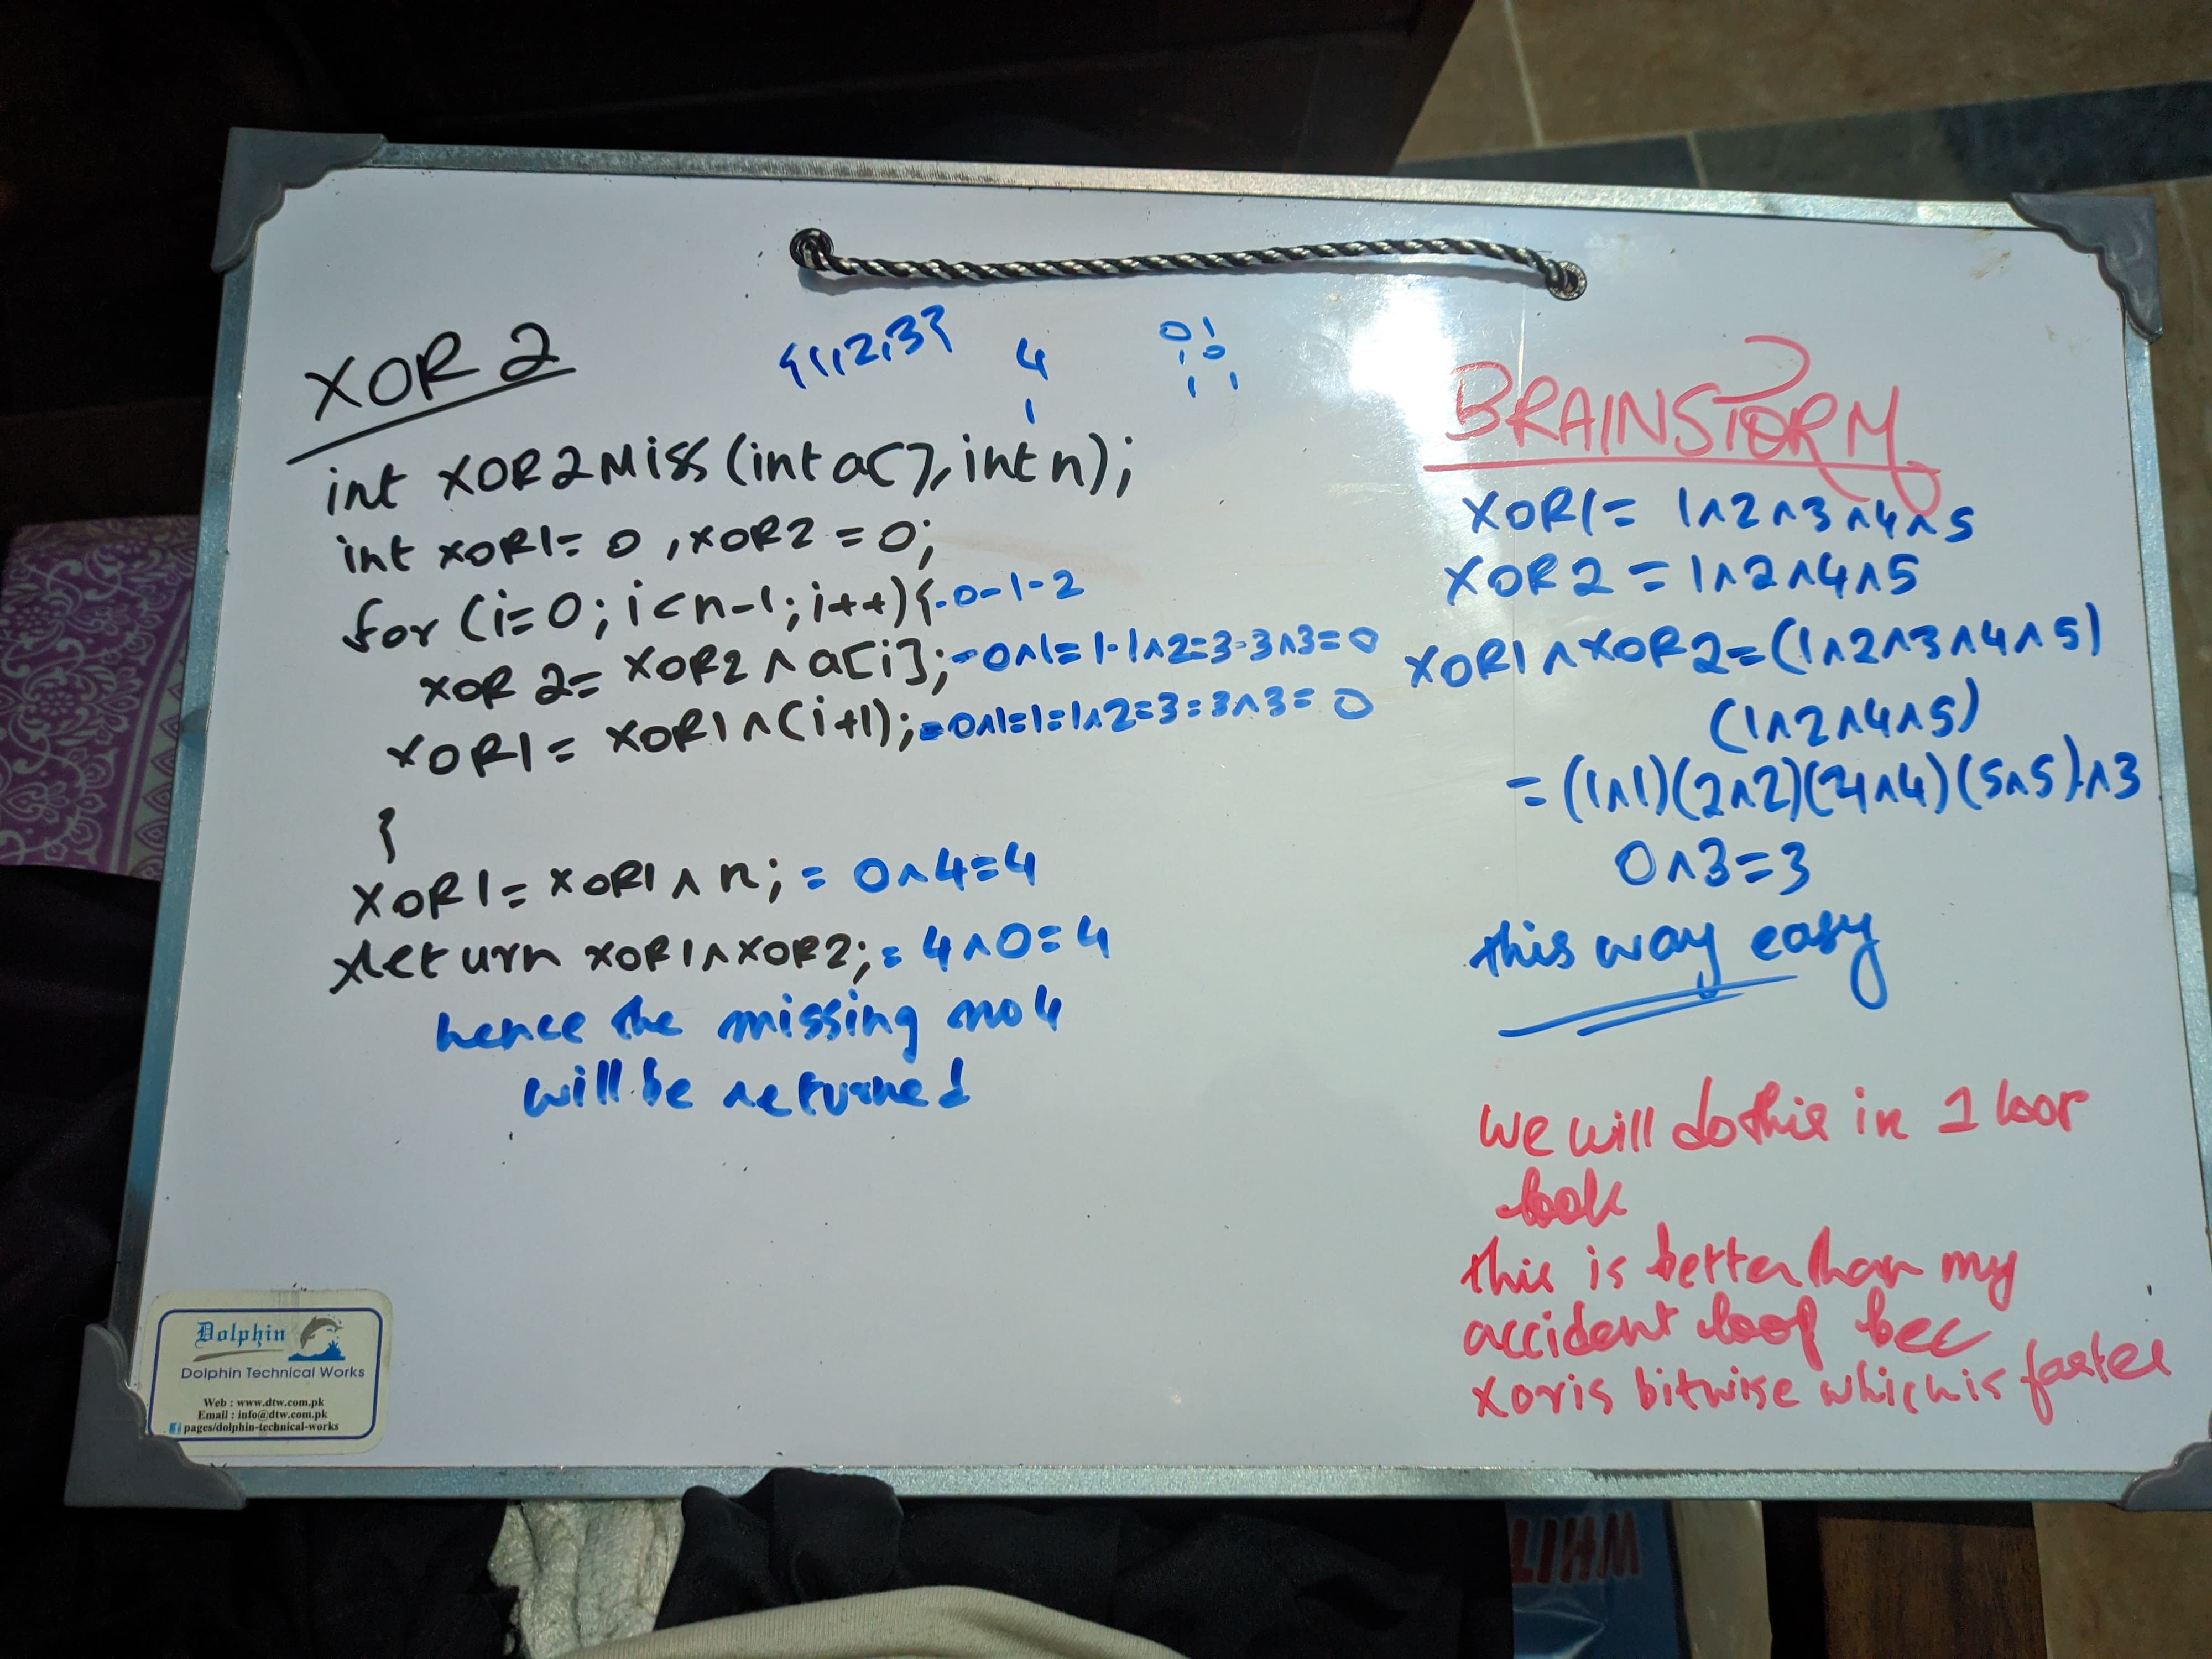 XOR 2
{1,2,3}
4
1
01
10
11
int XOR2Miss(int a[], int n);
int XOR1= 0 , XOR2 = 0;
for (i=0; i<n-1; i++){.0-1-2
XOR 2= XOR2 ^ a[i];-0^1=1-1^2=3-3^3=0
XOR1= XOR1^(i+1);=0^1=1=1^2=3=3^3=0
}
XOR1= XOR1 ^ n; = 0^4=4
return XOR1^XOR2; = 4^0=4
hence the missing no 4
will be returned
BRAINSTORM
XOR1= 1^2^3^4^5
XOR2 = 1^2^4^5
XOR1^XOR2=(1^2^3^4^5)
(1^2^4^5)
= (1^1)(2^2)(4^4)(5^5)^3
0^3=3
this way easy
we will do this in 1 loop
look
this is better than my
accident loop bec
xor is bitwise which is faster
Dolphin
Dolphin Technical Works
Web : www.dtw.com.pk
Email : info@dtw.com.pk
pages/dolphin-technical-works